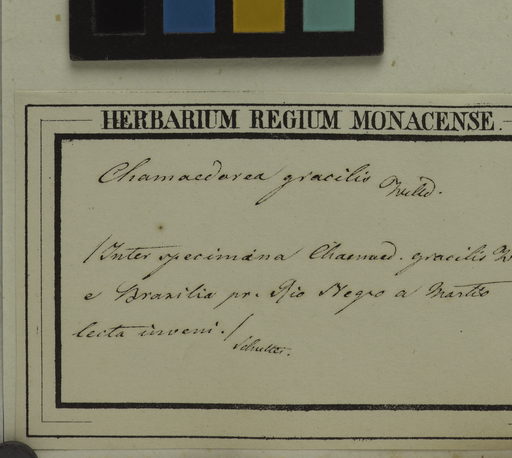 HERBARIUM REGIUM MONACENSE.
Chamaedorea gracilis Willd.
/Inter specimina Chaemaed. gracilis W
e Brasilia pr. Rio Negro a Martio
lecta inveni./
Schultes.